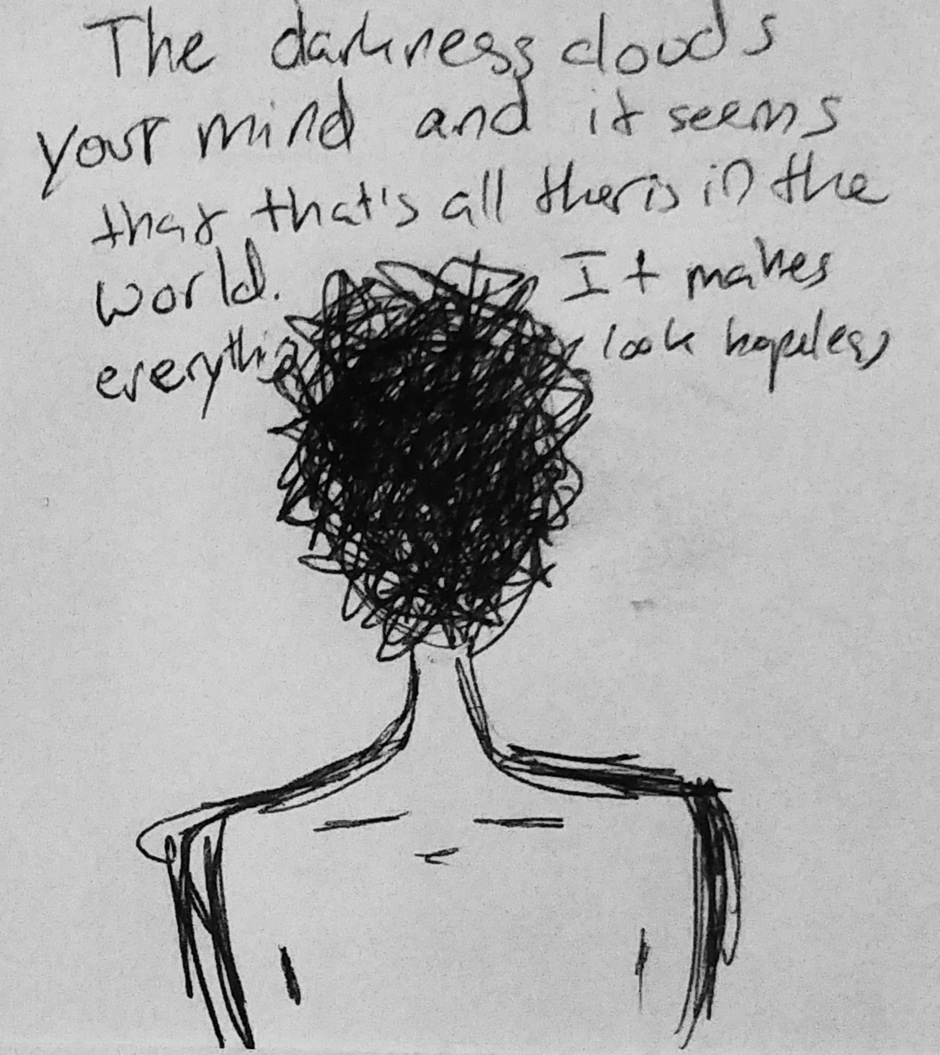 The darkness clouds
your mind and it seems
that that's all ther is in the
world. It makes
everything look hopeless